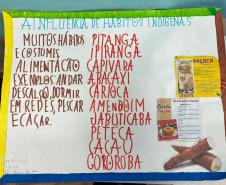 A INFLUENCIA DE HABITOS INDIGENAS
MUITOS HÁBITOS
E COSTUMES
ALIMENTAÇÃO
EXEMPLOS: ANDAR
DESCALÇO, DORMIR
EM REDES, PESCAR
E CAÇAR.
PITANGA
IPIRANGA
CAPIVARA
ABACAXI
CARIOCA
AMENDOIM
JABUTICABA
PETECA
CACAO
COROROBA
PAÇOCA